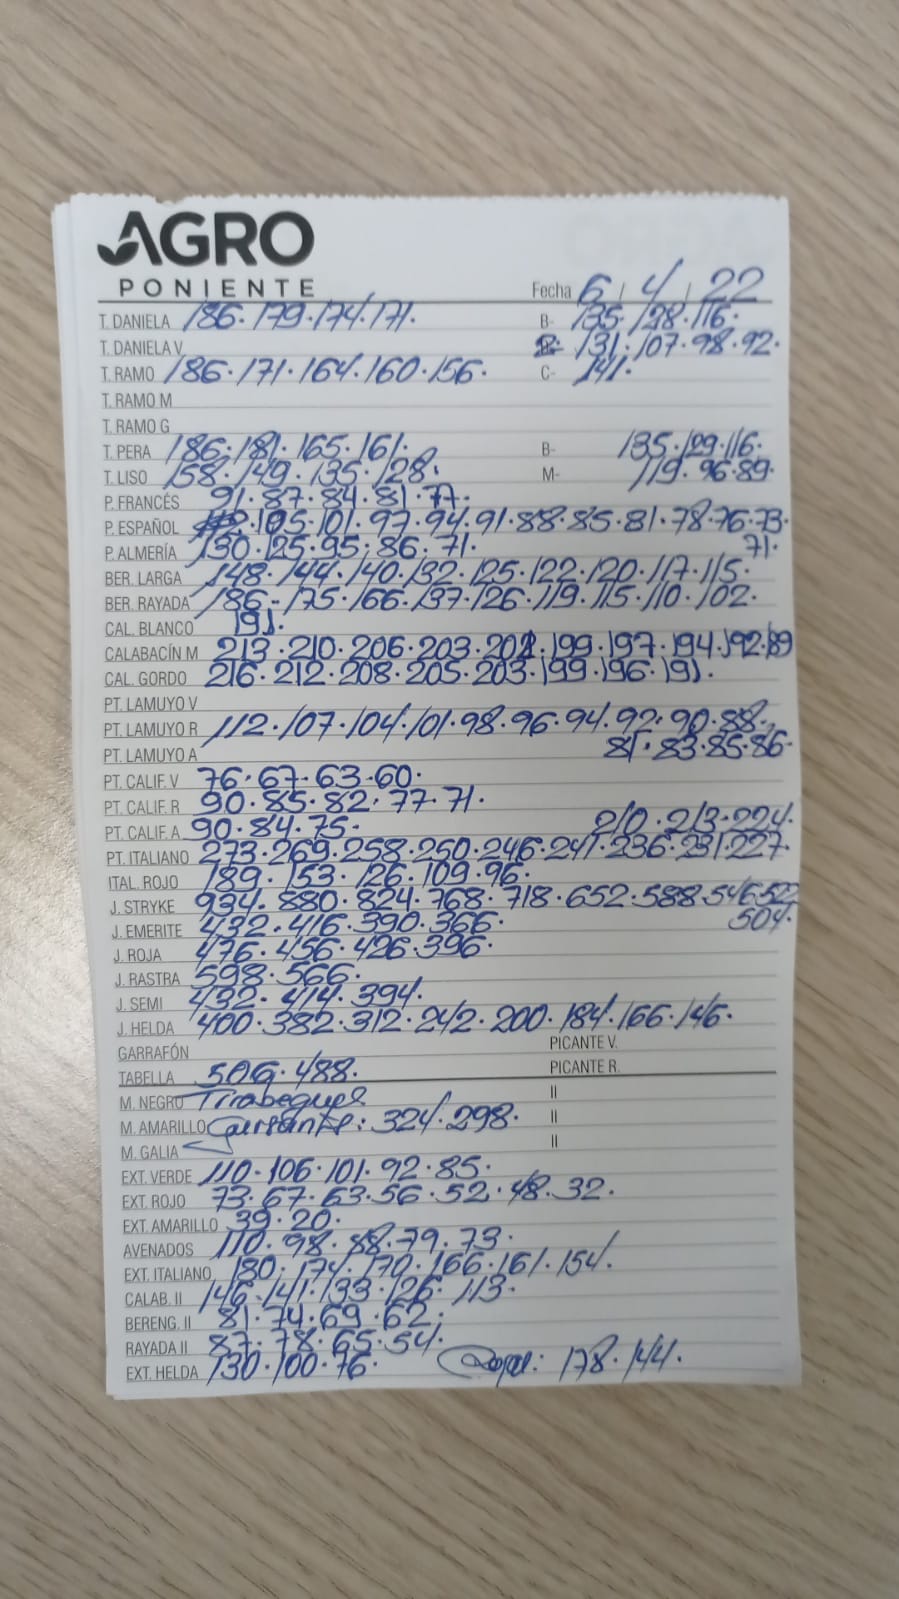 AGRO
PONIENTE
Fecha 6 / 4 / 22
T. DANIELA 186. 179. 174. 171. B- 135. 128. 116.
T. DANELA V 131. 107. 98. 92.
T. RAMO 186. 171. 164. 160. 156. C- 141.
T. RAMO M
T. RAMO G
T. PERA 186. 181. 165. 161. B- 135. 129. 116.
T. LISO 158. 149. 135. 128. M- 119. 96. 89.
P. FRANCÉS 91. 87. 84. 81. 77.
P. ESPAÑOL 105. 101. 97. 94. 91. 88. 85. 81. 78. 76. 73.
71.
P. ALMERÍA 130. 125. 95. 86. 71.
BER. LARGA 148. 144. 140. 132. 125. 122. 120. 117. 115.
BER. RAYADA 186- 175. 166. 137. 126. 119. 115. 110. 102.
CAL. BLANCO 191.
CALABACÍN M 213. 210. 206. 203. 201. 199. 197. 194. 192. 189
CAL. GORDO 216. 212. 208. 205. 203. 199. 196. 191.
PT. LAMUYO V
PT. LAMUYO R 112. 107. 104. 101. 98. 96. 94. 92. 90. 88.
PT. LAMUYO A 81. 83. 85. 86.
PT. CALIF. V 76. 67. 63. 60.
PT. CALIF. R 90. 85. 82. 77. 71.
PT. CALIF. A 90. 84. 75. 210. 213. 224.
PT. ITALIANO 273. 269. 258. 250. 246. 241. 236. 231. 227.
ITAL. ROJO 189. 153. 126. 109. 96.
J. STRYKE 934. 880. 824. 768. 718. 652. 588. 546. 522
504.
J. EMERITE 432. 416. 390. 366.
J. ROJA 476. 456. 426. 396.
J. RASTRA 598. 566.
J. SEMI 432. 414. 394.
J. HELDA 400. 382. 312. 242. 200. 184. 166. 146.
GARRAFÓN PICANTE V.
TABELLA 506. 488. PICANTE R.
M. NEGRO Tirabeques II
M. AMARILLO Guisantes: 324. 298. II
M. GALIA II
EXT. VERDE 110. 106. 101. 92. 85.
EXT. ROJO 73. 67. 63. 56. 52. 48. 32.
EXT. AMARILLO 39. 20.
AVENADOS 110. 98. 88. 79. 73.
EXT. ITALIANO 180. 174. 170. 166. 161. 154.
CALAB. II 146. 141. 133. 126. 113.
BERENG. II 81. 74. 69. 62.
RAYADA II 87. 78. 65. 54.
EXT. HELDA 130. 100. 76. 178. 144.